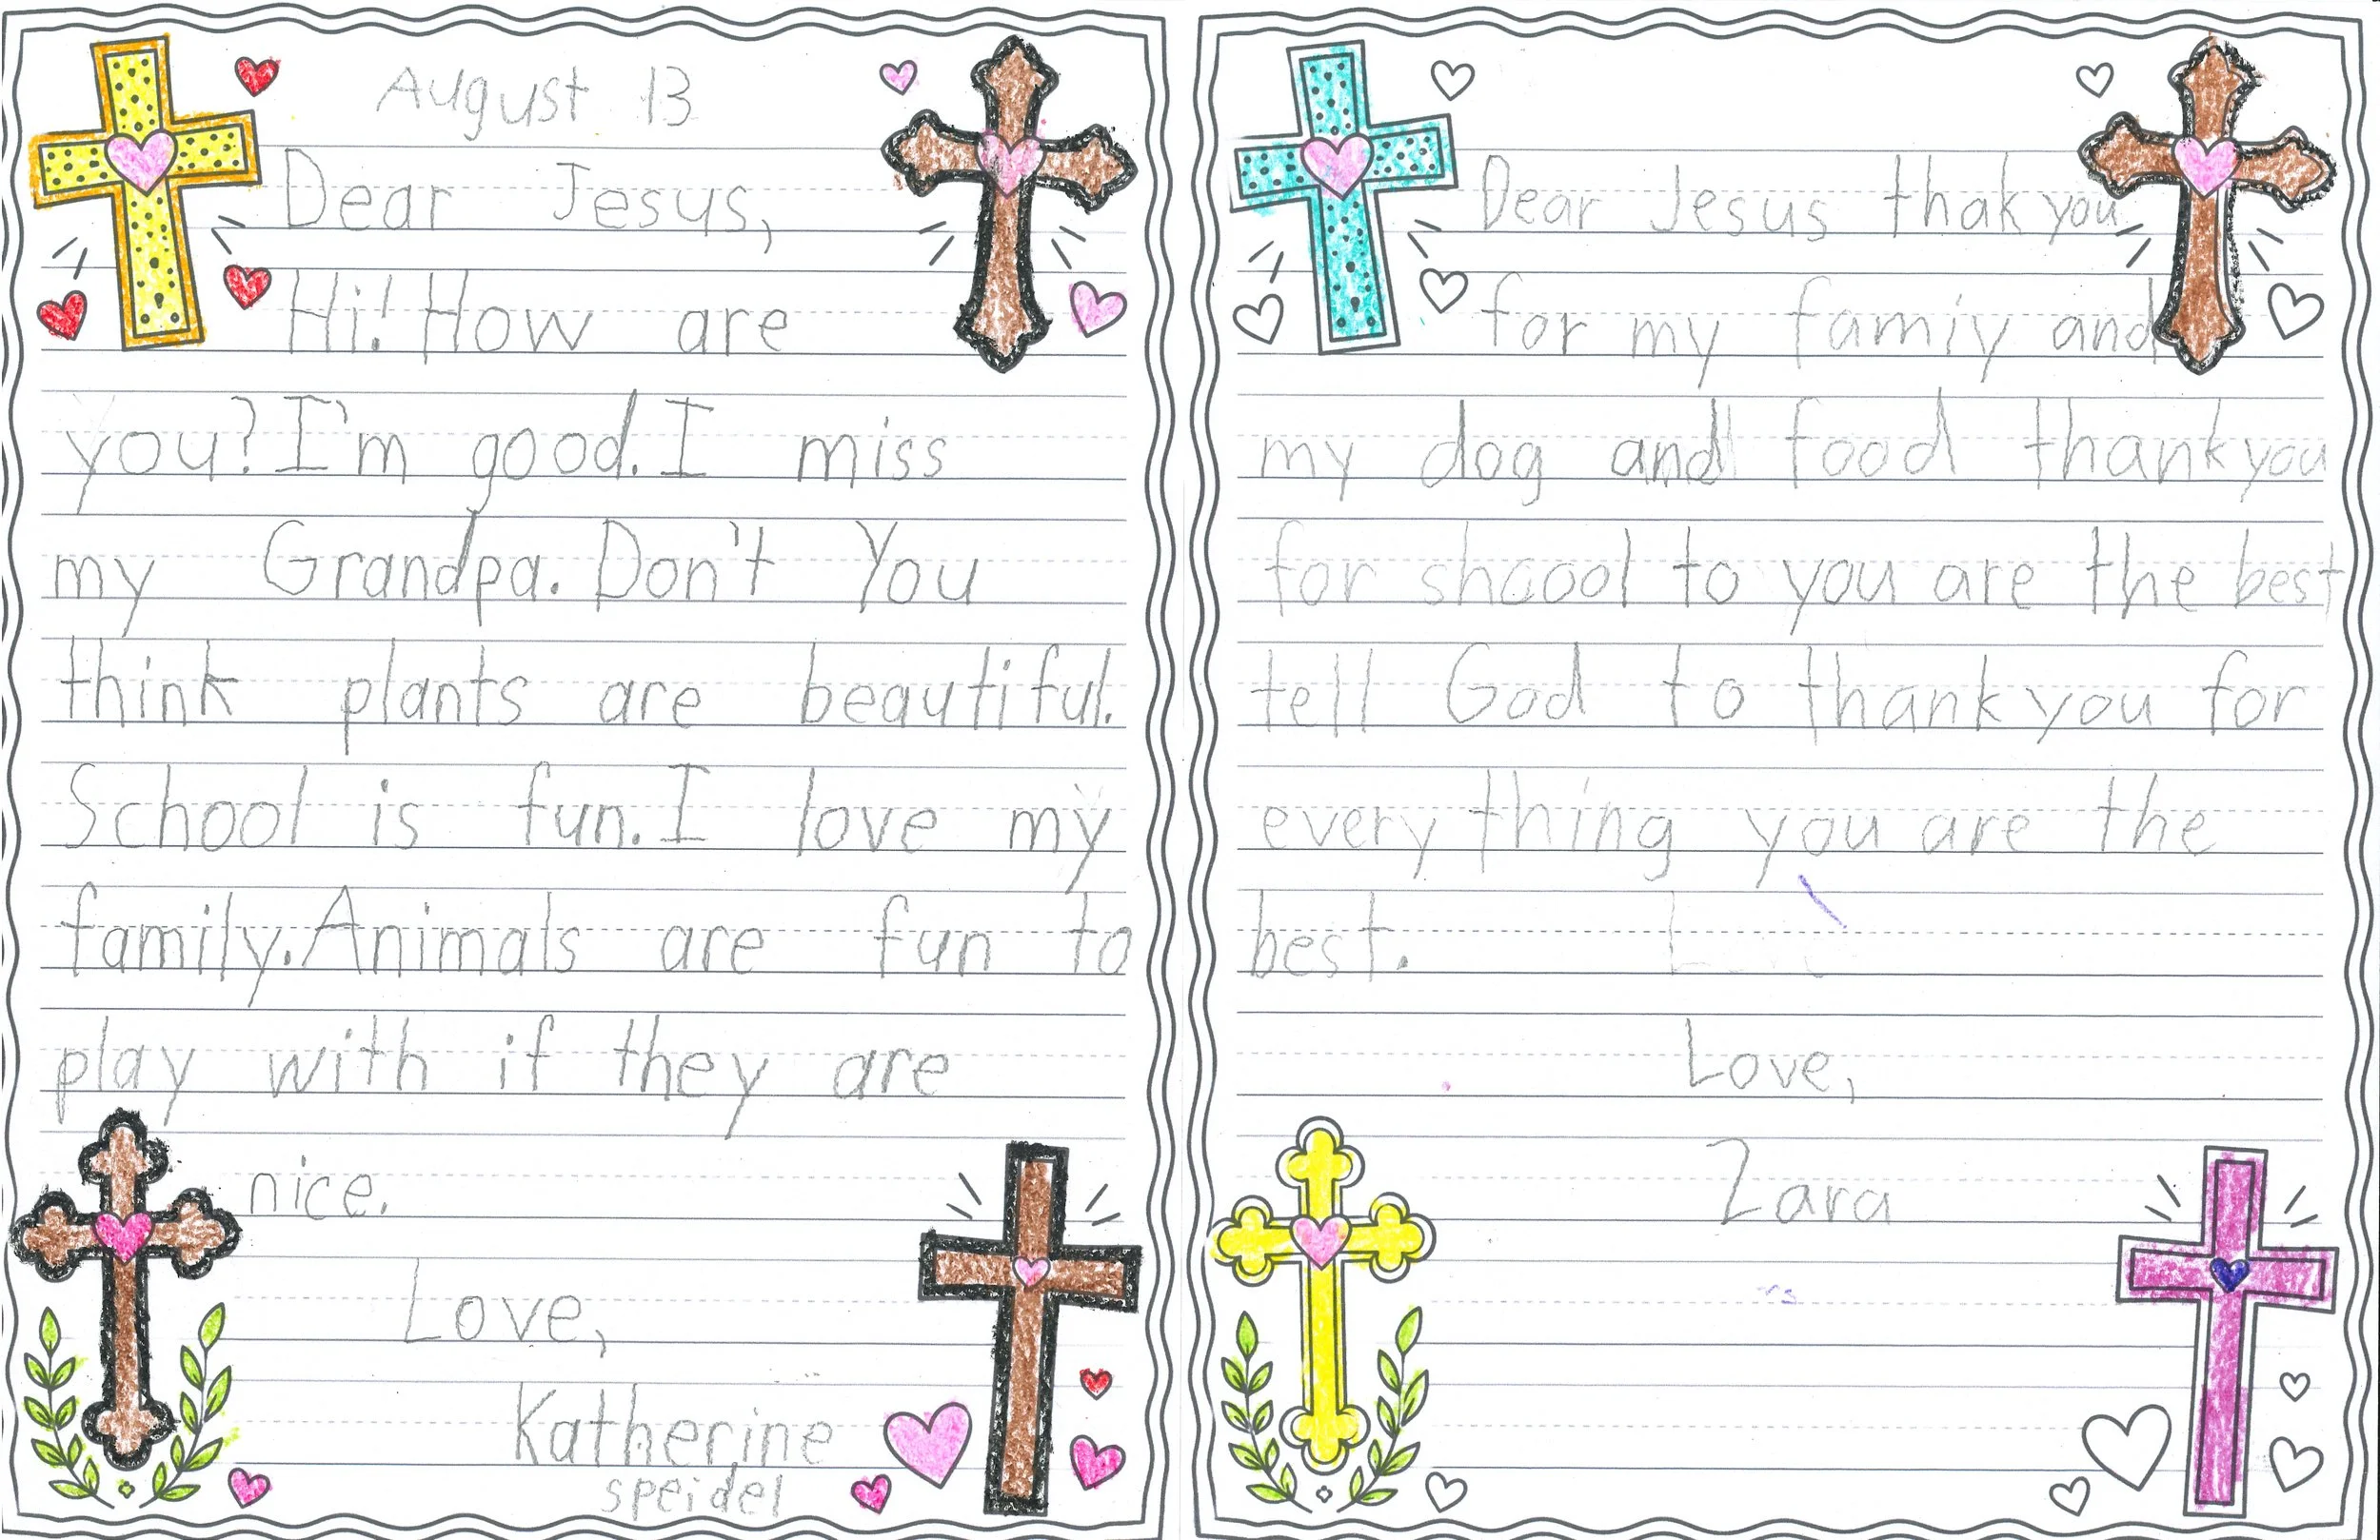 August 13
Dear Jesus,
Hi! How are
you? I'm good. I miss
my Grandpa. Don't You
think plants are beautiful.
School is fun. I love my
family. Animals are fun to
play with if they are
nice.
Love,
Katherine
speidel
Dear Jesus thak you
for my famiy and
my dog and food thank you
for shcool to you are the best
tell God to thank you for
every thing you are the
best.
Love,
Zara